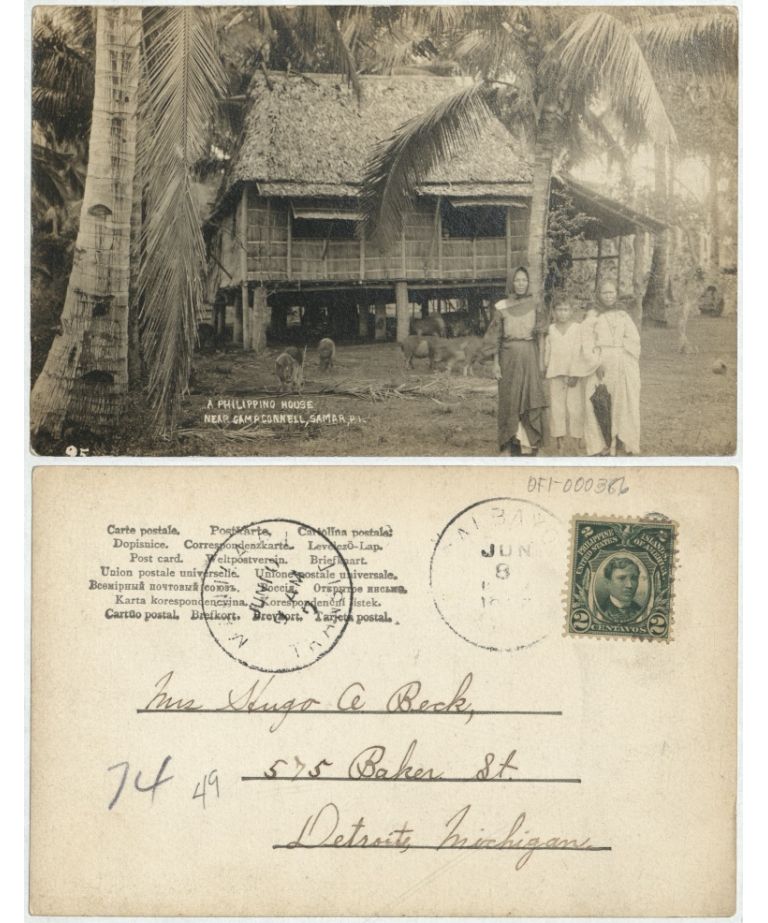 A PHILIPPINO HOUSE
NEAR CAMP CONNELL, SAMAR, P.I.
95
OFI-000366
Carte postale. Postkarte. Cartolina postale.
Dopisnice. Correspondenzkarte. Levelező-Lap.
Post card. Weltpostverein. Briefkaart.
Union postale universelle. Unione postale universale.
Всемірный почтовый союзъ. Россія. Открытое письмо.
Karta korespondencyjna. Korespondenční lístek.
Cartão postal. Brefkort. Brevkort. Tarjeta postal.
JUN
8
PHILIPPINE ISLANDS
UNITED STATES OF AMERICA
2 CENTAVOS 2
Mrs Hugo A Beck,
575 Baker St.
Detroit, Michigan.
74 49